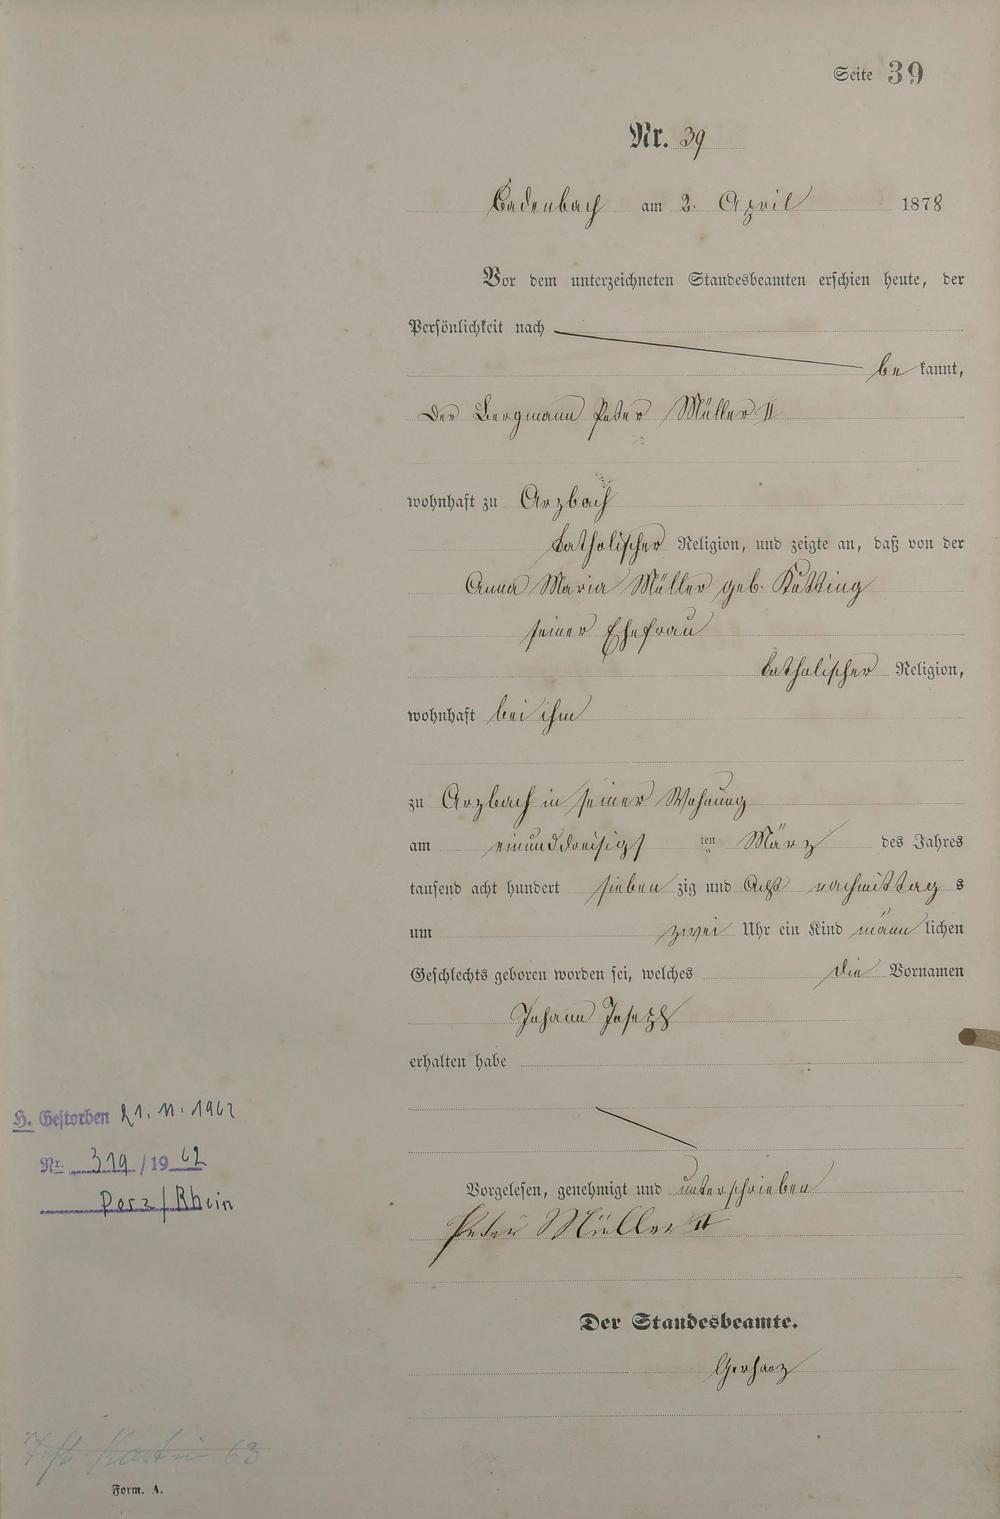 Seite 39
Nr. 39
Cadenbach am 2. April 1878
Vor dem unterzeichneten Standesbeamten erschien heute, der
Persönlichkeit nach
be kannt,
der Bergmann Peter Müller II
wohnhaft zu Arzbach
katholischer Religion, und zeigte an, daß von der
Anna Maria Müller geb. Kötting
seiner Ehefrau
katholischer Religion,
wohnhaft bei ihm
zu Arzbach in seiner Wohnung
am einunddreisigst ten März des Jahres
tausend acht hundert sieben zig und Acht nachmittag s
um zwei Uhr ein Kind männ lichen
Geschlechts geboren worden sei, welches die Vornamen
Johann Joseph
erhalten habe
H. Gestorben 21.11.1962
Nr. 319/1962
Porz/Rhein
Vorgelesen, genehmigt und unterschrieben
Peter Müller II
Der Standesbeamte.
Gerharz
63
Form. A.